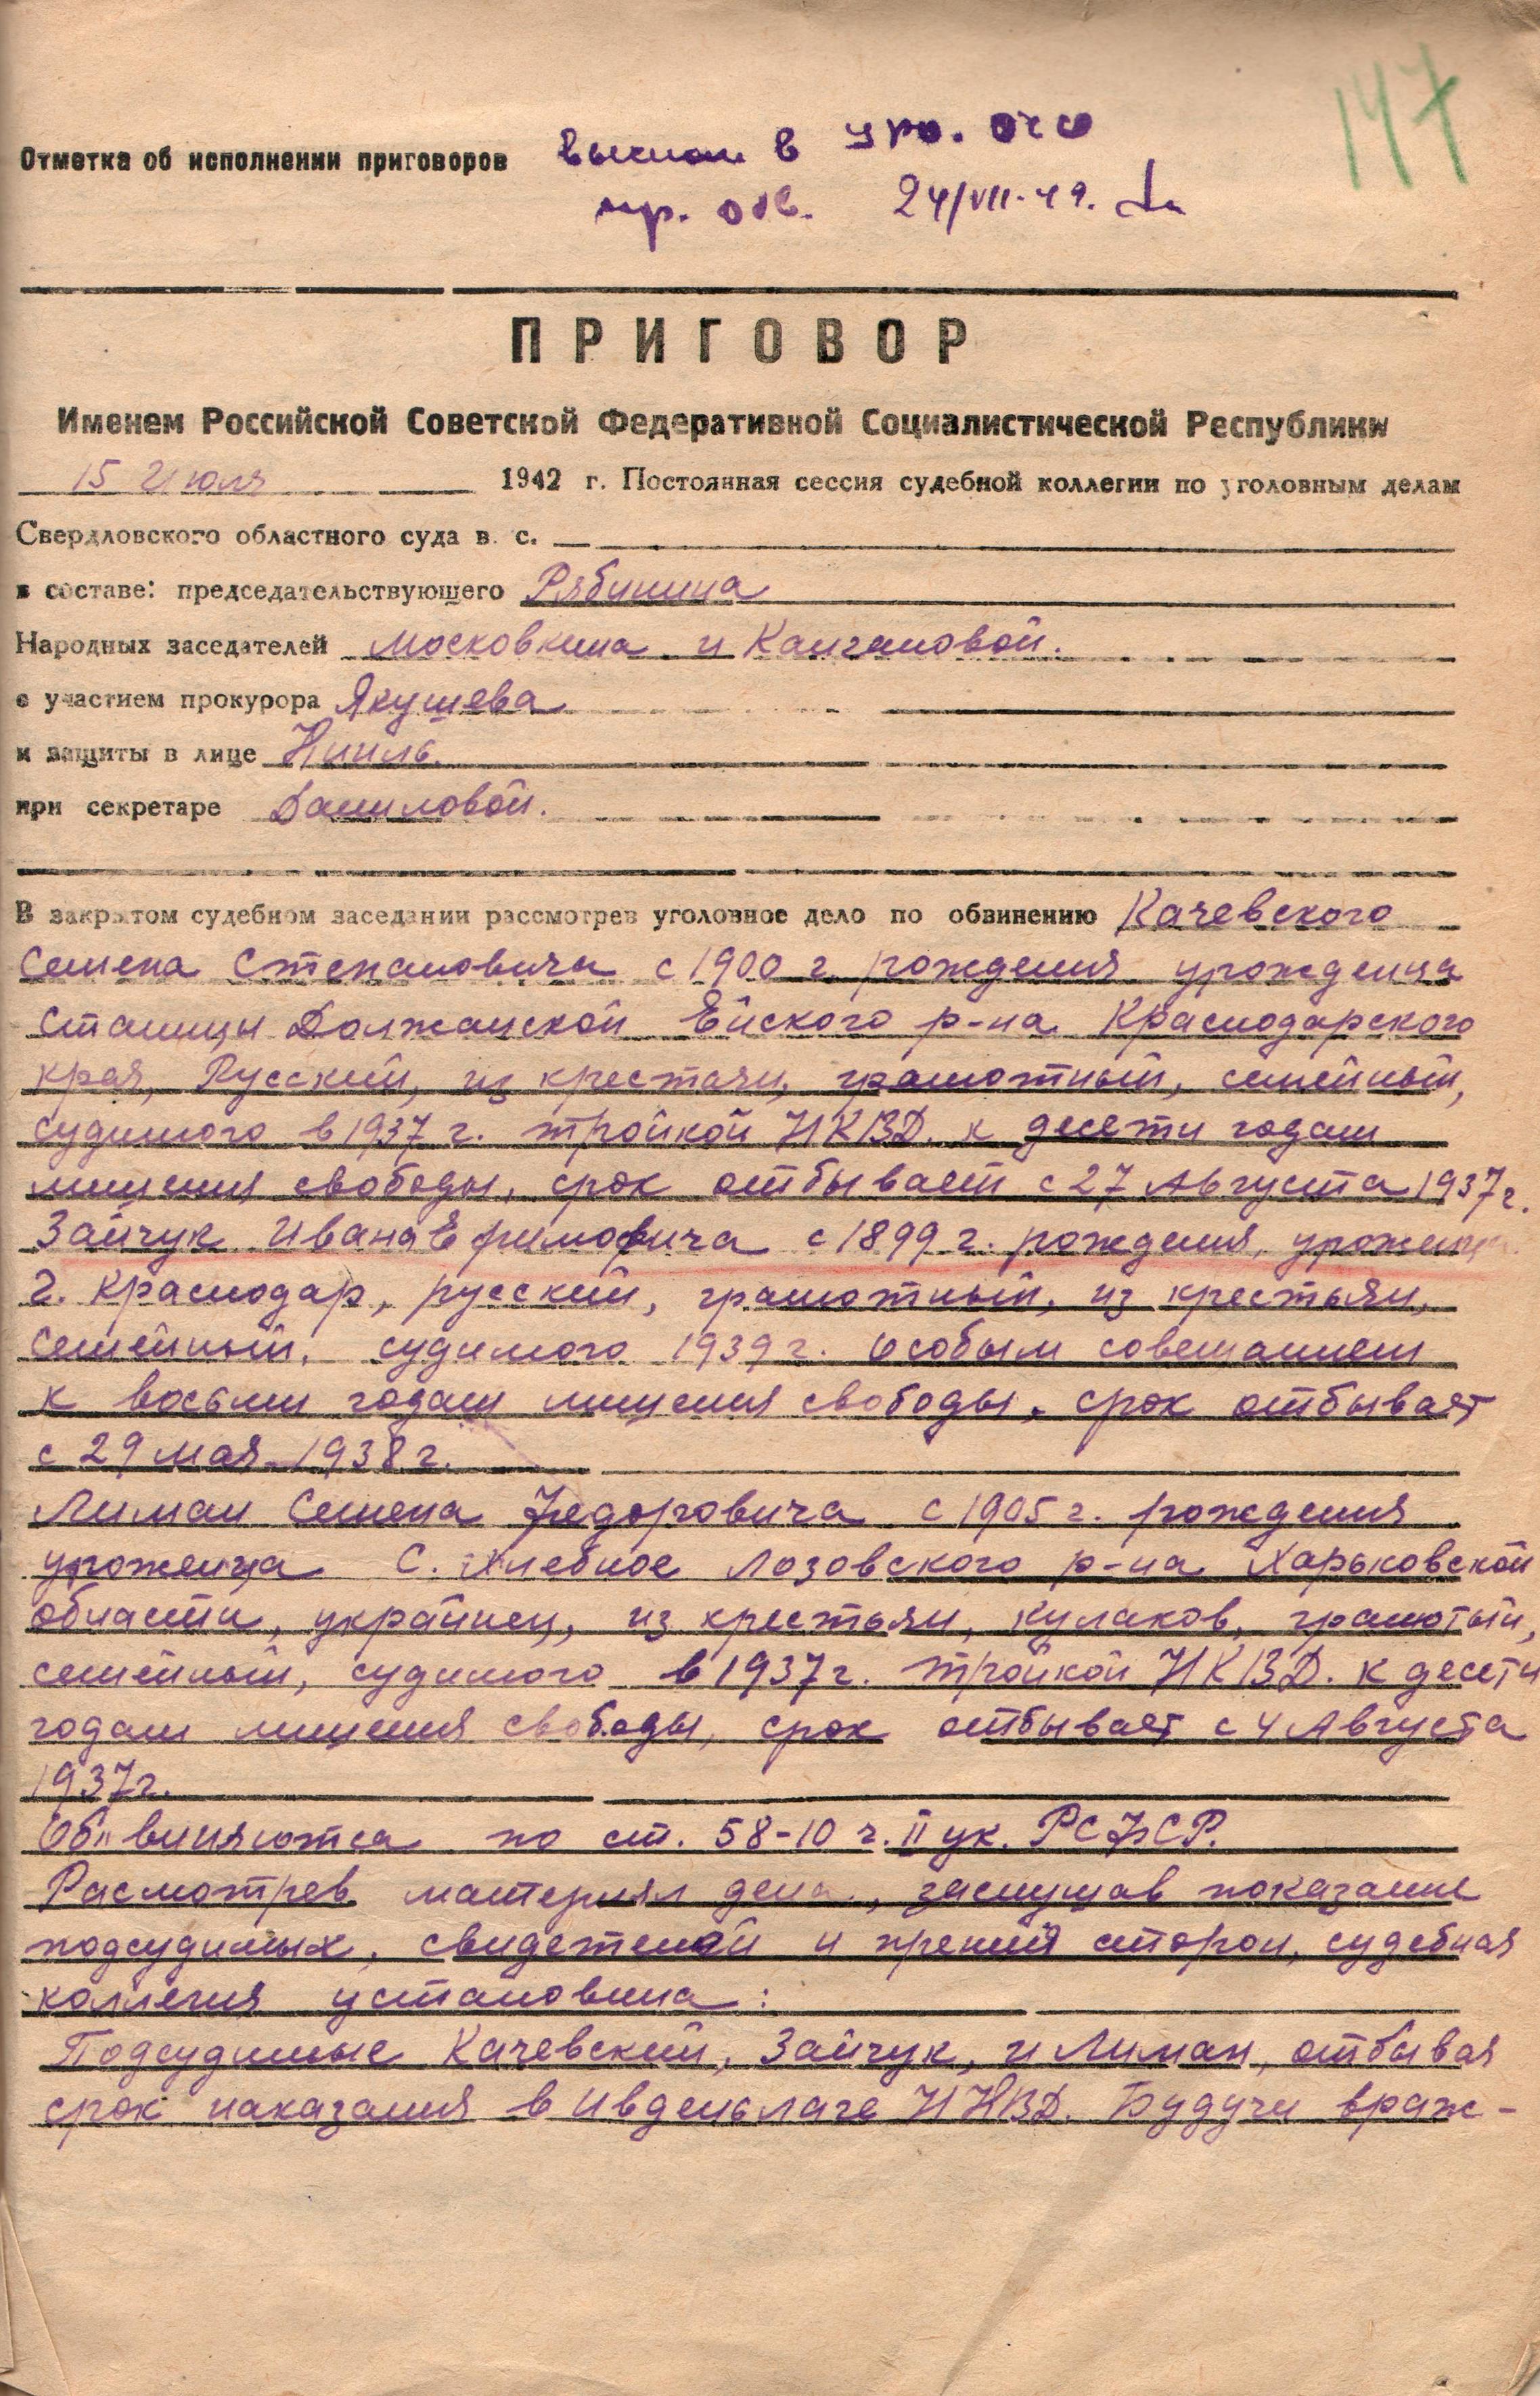 147
Отметка об исполнении приговоров
в
24/VII-49.
ПРИГОВОР
Именем Российской Советской Федеративной Социалистической Республики
15 Июля 1942 г. Постоянная сессия судебной коллегии по уголовным делам
Свердловского областного суда в с.
в составе: председательствующего Рябинина
Народных заседателей Московкина и
с участием прокурора Якушева
и защиты в лице
при секретаре Даниловой.
В закрытом судебном заседании рассмотрев уголовное дело по обвинению Качевского
Семена Степановича с 1900 г. рождения урожденца
станицы Должанской Ейского р-на Краснодарского
края, Русский, из крестьян, грамотный, семейный,
судимого в 1937 г. тройкой НКВД. к десети годам
лишения свободы, срок отбывает с 27 Августа 1937 г.
Зайчук Ивана Ефимовича с 1899 г. рождения,
г. Краснодар, русский, грамотный, из крестьян,
семейный, судимого 1939 г. Особым совещанием
к восьми годам лишения свободы, срок отбывает
с 29 мая 1938 г.
Лиман Семена Федоровича с 1905 г. рождения
уроженца С. Хлебное Лозовского р-на Харьковской
области, украинец, из крестьян, кулаков, грамотый,
семейный, судимого в 1937 г. тройкой НКВД. к десети
годам лишения свободы, срок отбывает с 4 Августа
1937 г.
Обвиняются по ст. 58-10 ч. II ук. РСФСР.
Расмотрев материял дела, заслушав показание
подсудимых, свидетелей и прений сторон, судебная
коллегия установила:
Подсудимые Качевский, Зайчук, и Лиман, отбывая
срок наказания в Ивдельлаге НКВД. Будучи враж-